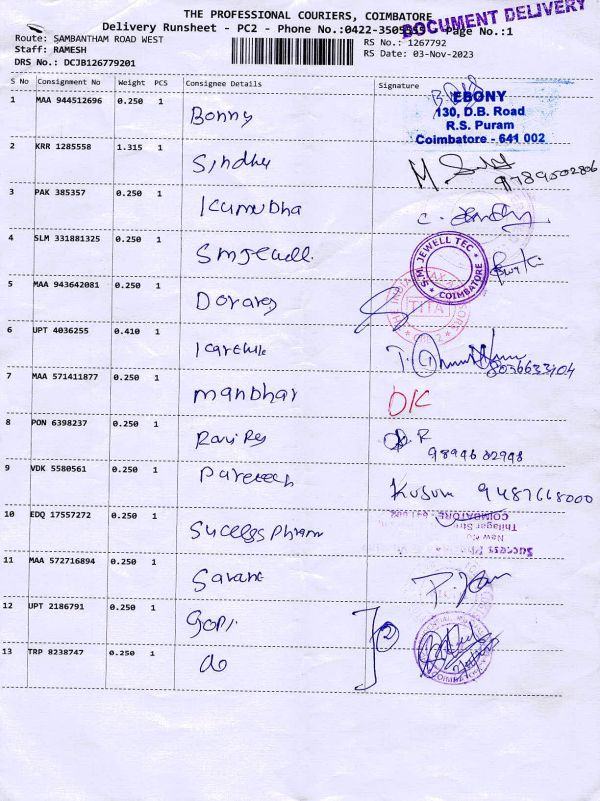 THE PROFESSIONAL COURIERS, COIMBATORE
DOCUMENT DELIVERY
Delivery Runsheet - PC2 - Phone No.:0422-3505353 Page No.:1
Route: SAMBANTHAM ROAD WEST
RS No.: 1267792
Staff: RAMESH
RS Date: 03-Nov-2023
DRS No.: DCJB126779201
S No Consignment No Weight PCS Consignee Details Signature
1 MAA 944512696 0.250 1 Bonny
EBONY
130, D.B. Road
R.S. Puram
Coimbatore - 641 002
2 KRR 1285558 1.315 1 Sindhu
9789502806
3 PAK 385357 0.250 1 Kumudha
4 SLM 331881325 0.250 1 Smjewell
S.M. JEWELL TEC
COIMBATORE
5 MAA 943642081 0.250 1
TITA
6 UPT 4036255 0.410 1 Karthik
8036633404
7 MAA 571411877 0.250 1 Manohar OK
8 PON 6398237 0.250 1 Ravi
9894682998
9 VDK 5580561 0.250 1 Paretech Kusum 9487668000
10 EDQ 17557272 0.250 1 Sucess Pharm
COIMBATORE
Thilagar Street
New No
Success
11 MAA 572716894 0.250 1 Sarane
12 UPT 2186791 0.250 1 Gopi
13 TRP 8238747 0.250 1 do